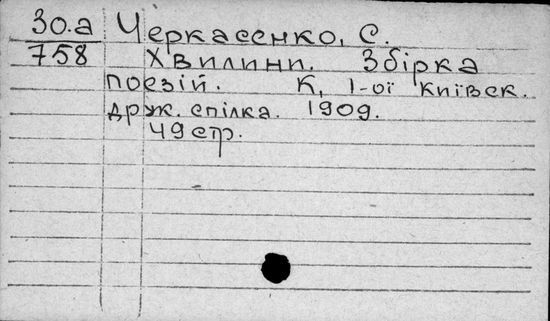 30.а Черкасенко, С.
758 Хвилини. Збірка
поезій. К, 1-ої київск.
друж. спілка. 1909.
49 стр.